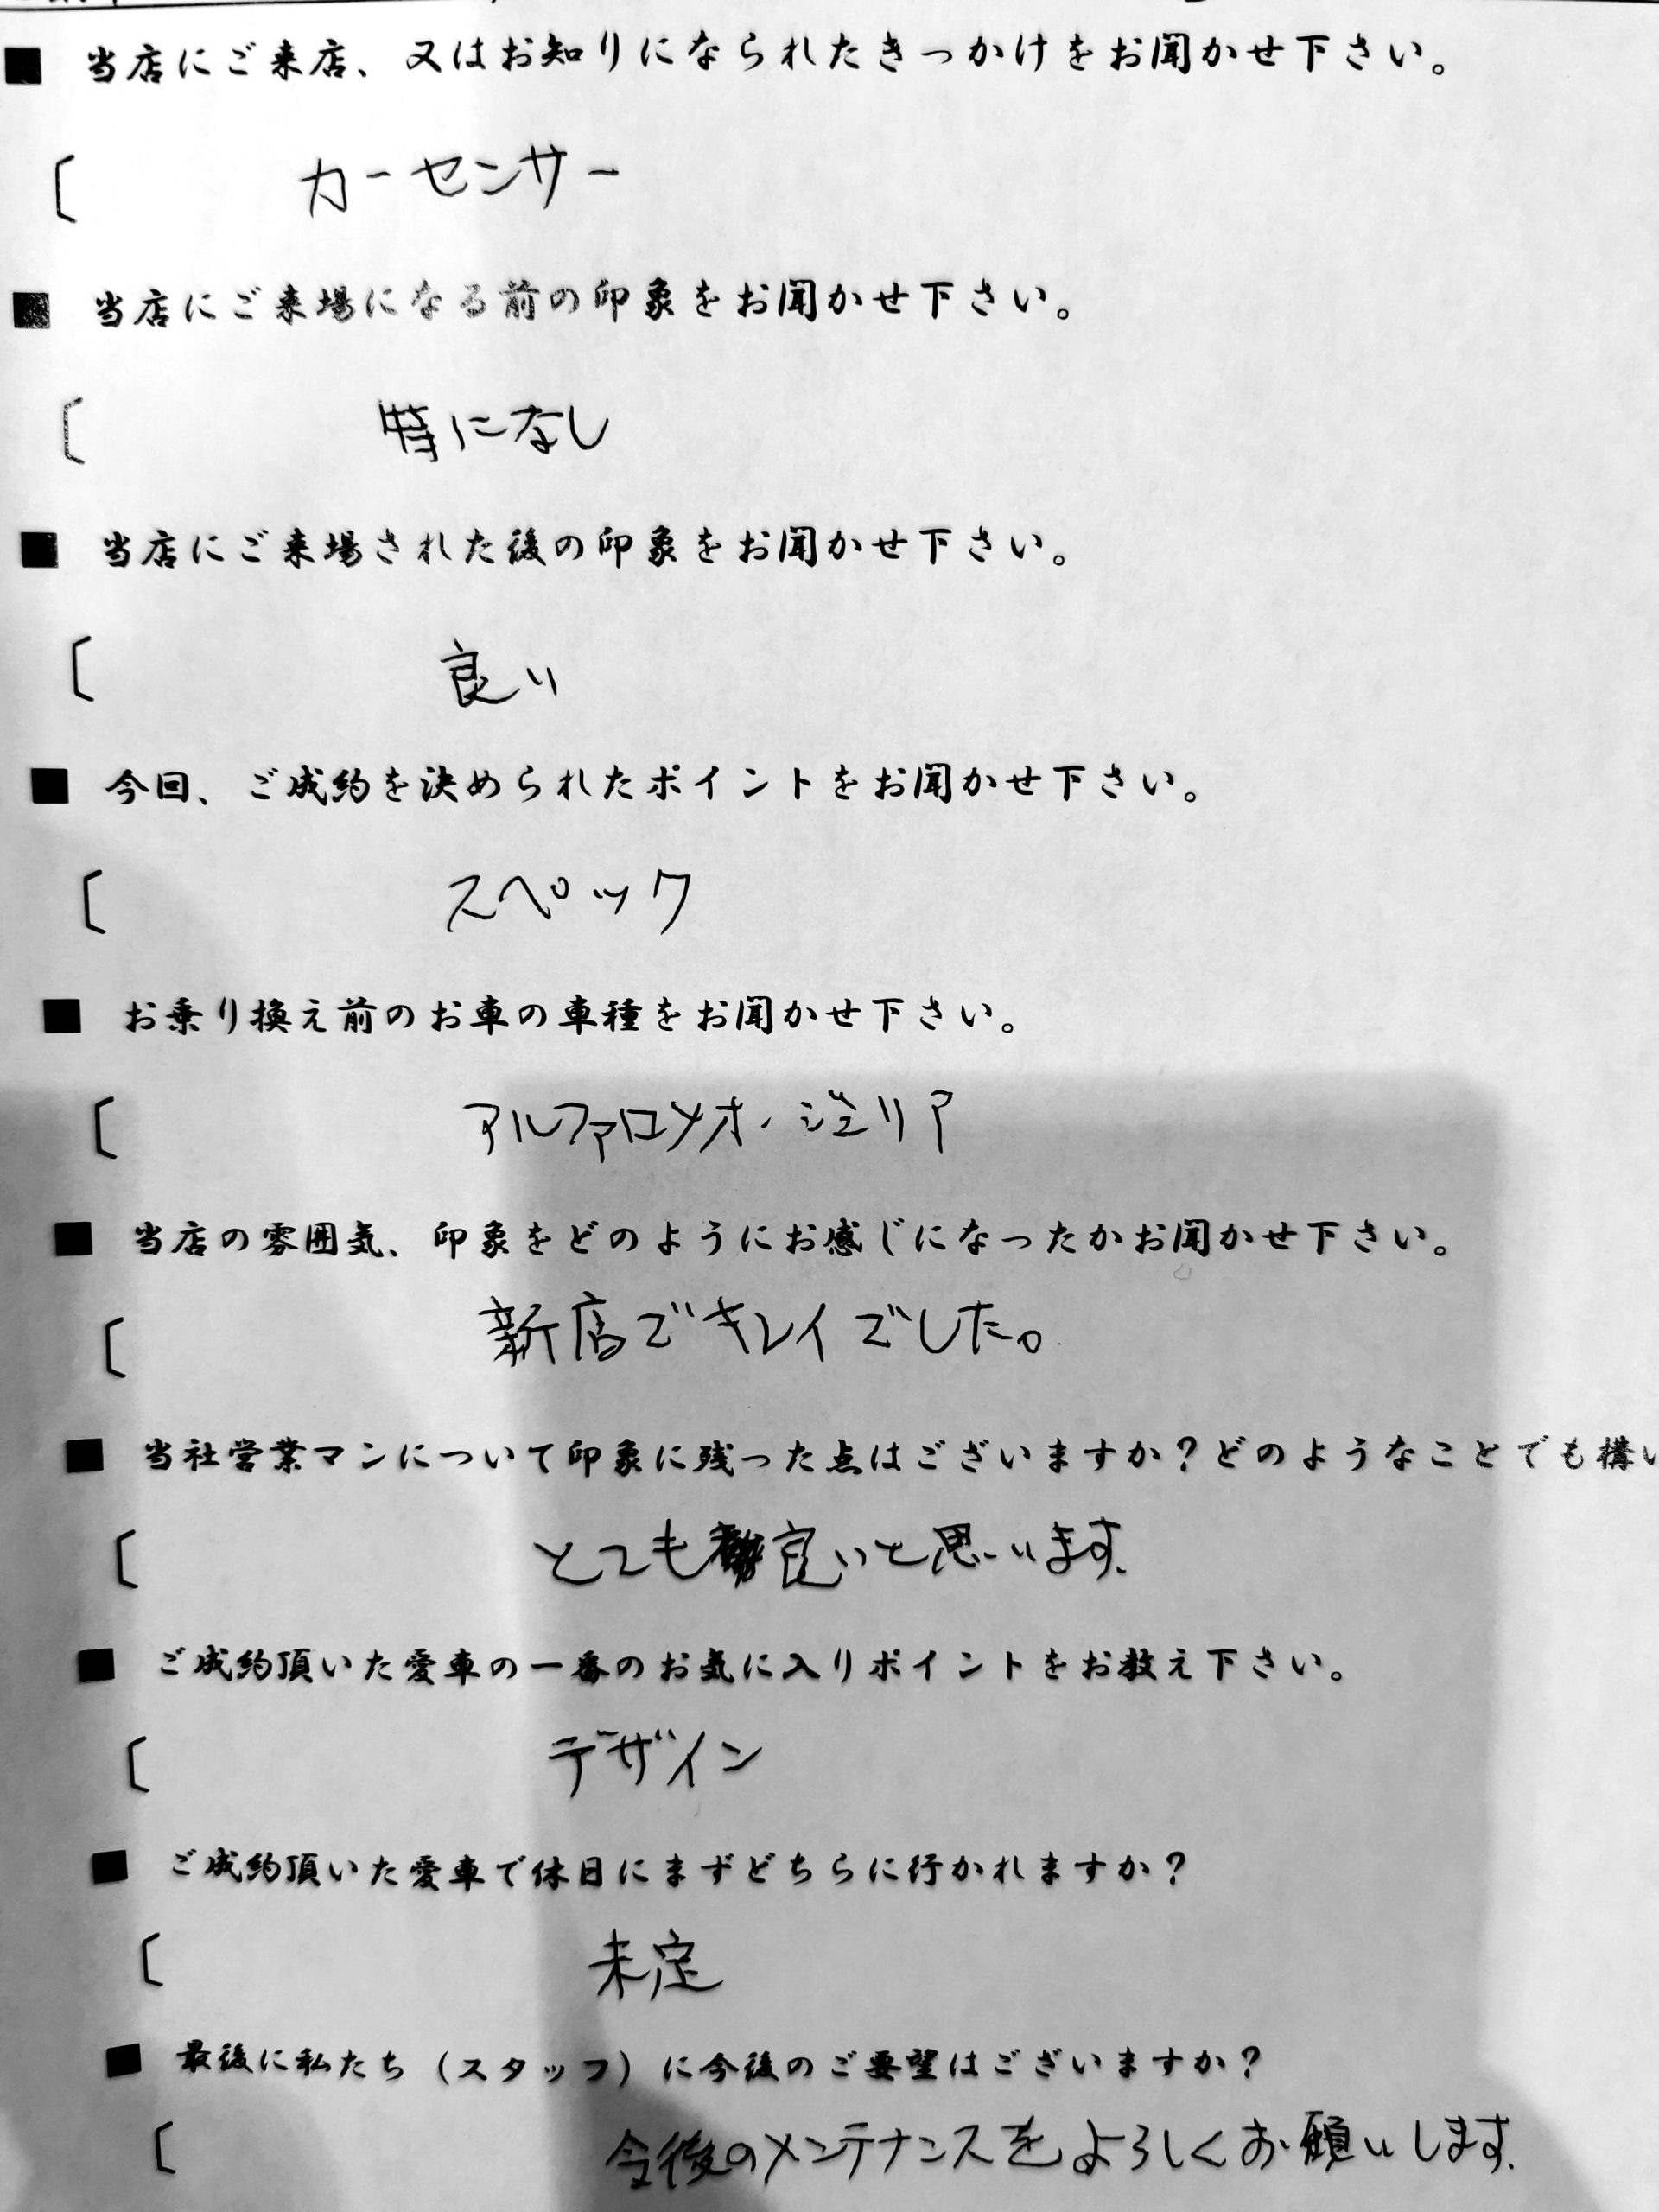 ■ 当店にご来店、又はお知りになられたきっかけをお聞かせ下さい。
〔 カーセンサー
■ 当店にご来場になる前の印象をお聞かせ下さい。
〔 特になし
■ 当店にご来場された後の印象をお聞かせ下さい。
〔 良い
■ 今回、ご成約を決められたポイントをお聞かせ下さい。
〔 スペック
■ お乗り換え前のお車の車種をお聞かせ下さい。
〔 アルファロメオ・ジュリア
■ 当店の雰囲気、印象をどのようにお感じになったかお聞かせ下さい。
〔 新店でキレイでした。
■ 当社営業マンについて印象に残った点はございますか？どのようなことでも構い
〔 とても良いと思います.
■ ご成約頂いた愛車の一番のお気に入りポイントをお教え下さい。
〔 デザイン
■ ご成約頂いた愛車で休日にまずどちらに行かれますか？
〔 未定
■ 最後に私たち（スタッフ）に今後のご要望はございますか？
〔 今後のメンテナンスをよろしくお願いします.